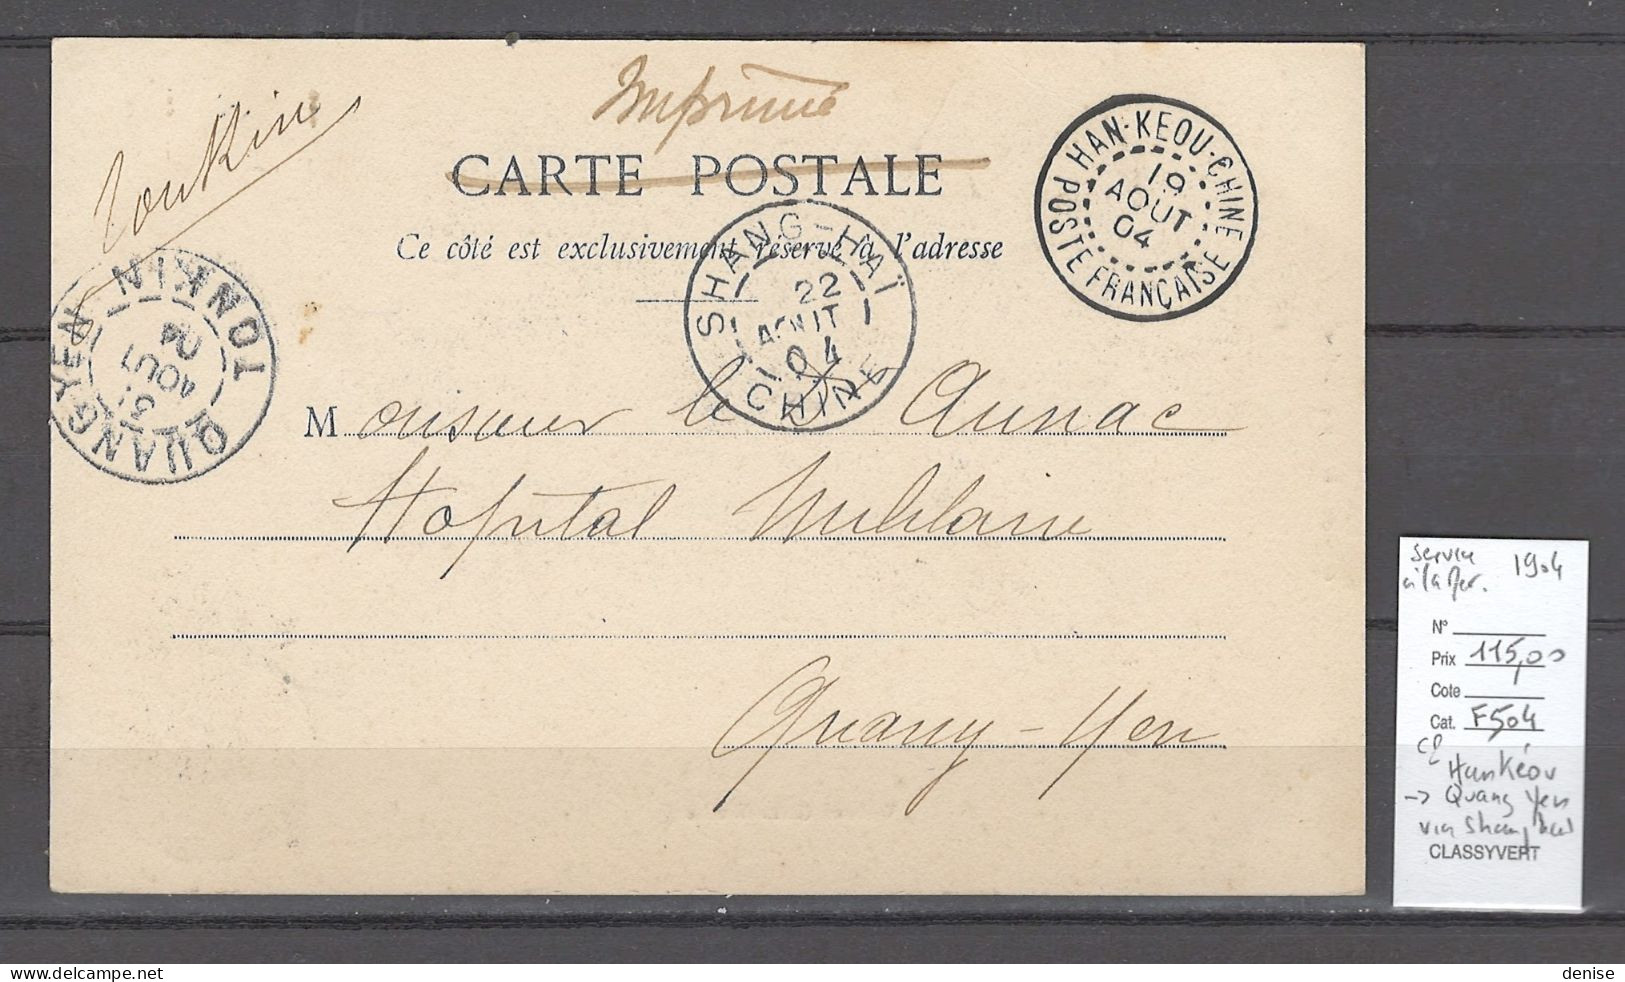 Imprimé
Tonkin
CARTE POSTALE
Ce côté est exclusivement réservé à l'adresse
HAN-KEOU-CHINE
19
AOUT
04
POSTE FRANÇAISE
SHANG-HAÏ
22
AOUT
04
CHINE
TONKIN
QUANG-YEN
AOUT
04
Monsieur le Dr Aunac
Hôpital Militaire
Quang-Yen
1904
N°
Prix 115,00
Cote
Cat. F504
CP
Hankéou
-> Quang Yen
via Shanghai
CLASSYVERT
denise